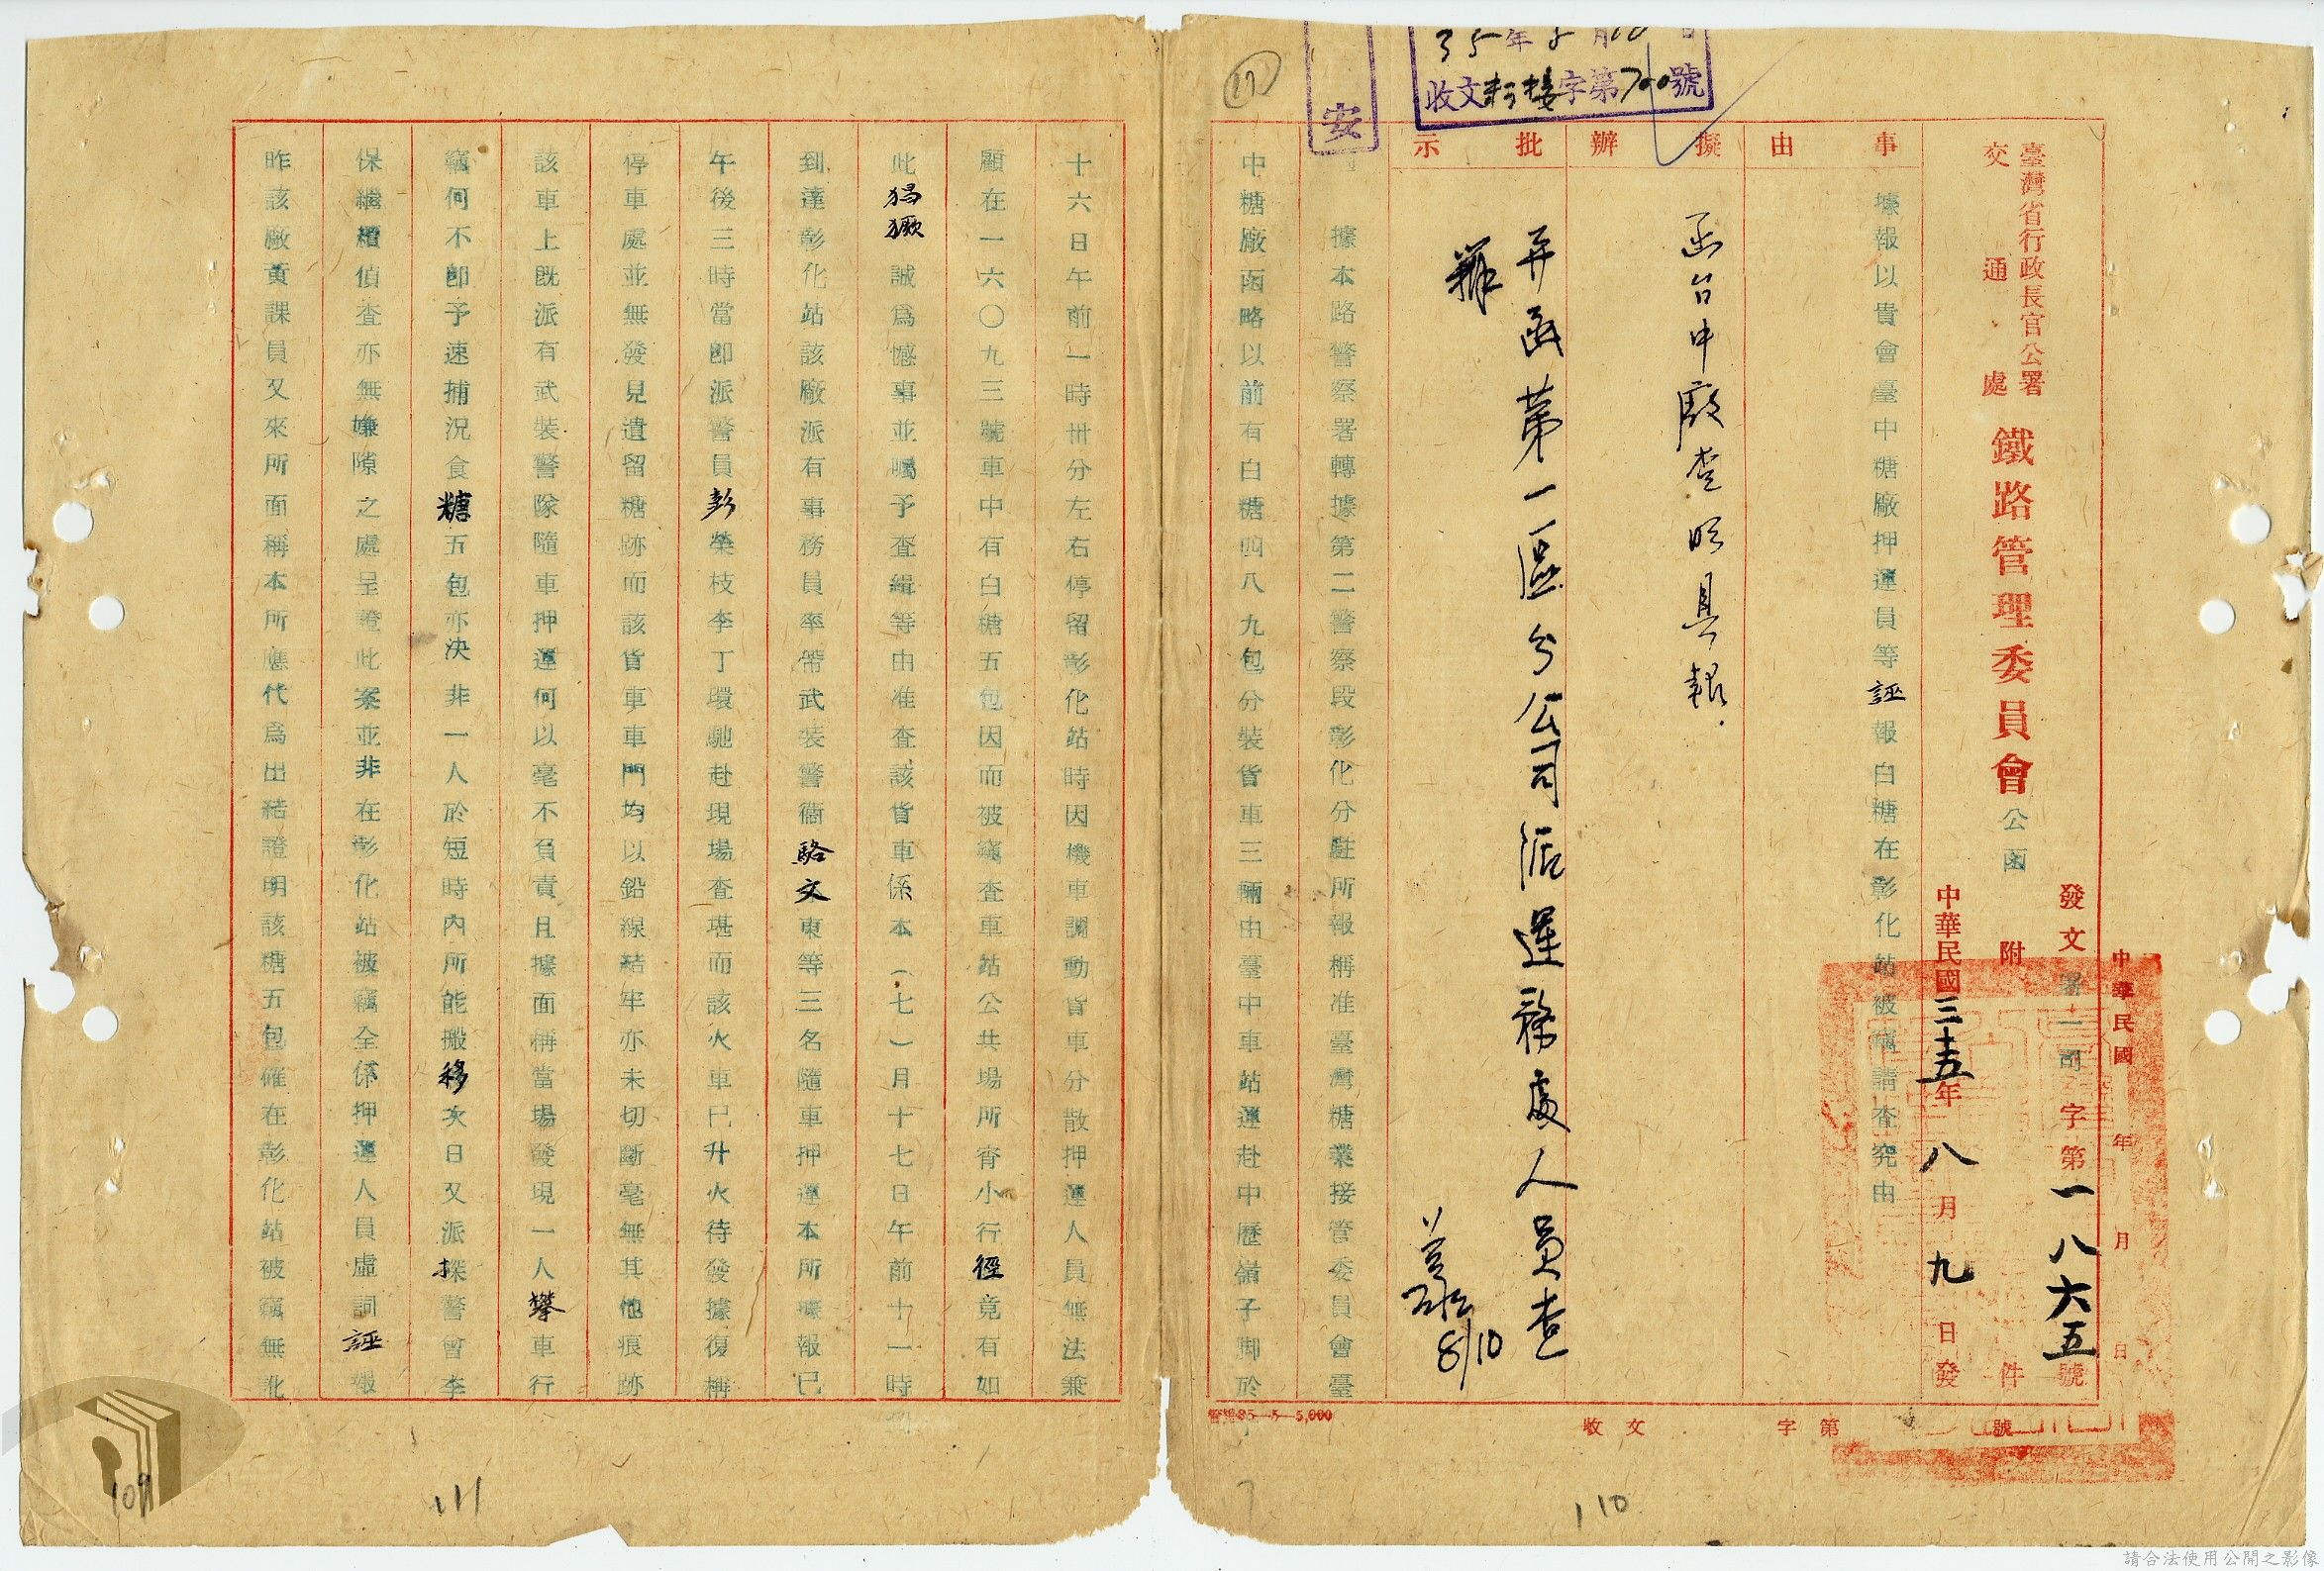 中華民國 年 月 日
發文署一司字第一八六五號
臺灣省行政長官公署
交通處
鐵路管理委員會公函 附 件
中華民國三十五年八月九日發
事由
據報以貴會臺中糖廠押運員等誣報白糖在彰化站被竊請查究由
擬辦
函台中廠查明具報.
批示
并函第一區分公司派運務處人員查
辦
8/10
35年8月10日
收文 接字第700號
安
17
據本路警察署轉據第二警察段彰化分駐所報稱准臺灣糖業接管委員會臺
中糖廠函略以前有白糖四八九包分裝貨車三輛由臺中車站運赴中歷嶺子脚於
警總35—5—5,000
收文 字第 號
110
十六日午前一時卅分左右停留彰化站時因機車調動貨車分散押運人員無法兼
顧在一六〇九三號車中有白糖五包因而被竊查車站公共場所宵小行徑竟有如
此猖獗誠為憾事並囑予查緝等由准查該貨車係本(七)月十七日午前十一時
到達彰化站該廠派有事務員率帶武裝警衞駱文東等三名隨車押運本所據報已
午後三時當即派警員彭榮枝李丁環馳赴現場查堪而該火車已升火待發據復稱
停車處並無發見遺留糖跡而該貨車車門均以鉛線結牢亦未切斷毫無其他痕跡
該車上既派有武裝警隊隨車押運何以毫不負責且據面稱當場發現一人攀車行
竊何不即予速捕況食糖五包亦決非一人於短時內所能搬移次日又派探警曾李
保繼續偵查亦無嫌隙之處呈證此案並非在彰化站被竊全係押運人員虛詞誣報
昨該廠黃課員又來所面稱本所應代為出結證明該糖五包確在彰化站被竊無訛
111
109
請合法使用公開之影像